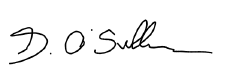 D. O'Sullivan